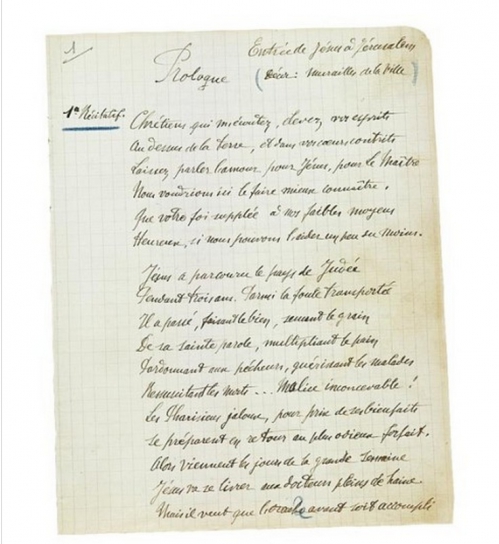 1
Entrée de Jésus à Jérusalem
Prologue
(Décor : Murailles de la Ville)
1° Récitatif.
Chrétiens qui m'écoutez, élevez vos esprits
Au dessus de la terre, et dans vos cœurs contrits
Laissez parler l'amour pour Jésus, pour le Maître
Nous voudrions ici le faire mieux connaître.
Que votre foi supplée à nos faibles moyens
Heureux, si nous pouvons l'aider un peu du moins.
Jésus a parcouru le pays de Judée
Pendant trois ans. Parmi la foule transportée
Il a passé, faisant le bien, semant le grain
De sa sainte parole, multipliant le pain
Pardonnant aux pécheurs, guérissant les malades
Ressuscitant les morts ... Malice inconcevable !
Les Pharisiens jaloux, pour prix de ses bienfaits
Se préparent en retour au plus odieux forfait.
Alors viennent les jours de la grande Semaine
Jésus va se livrer aux docteurs pleins de haine
Mais il veut que avant soit accompli
2